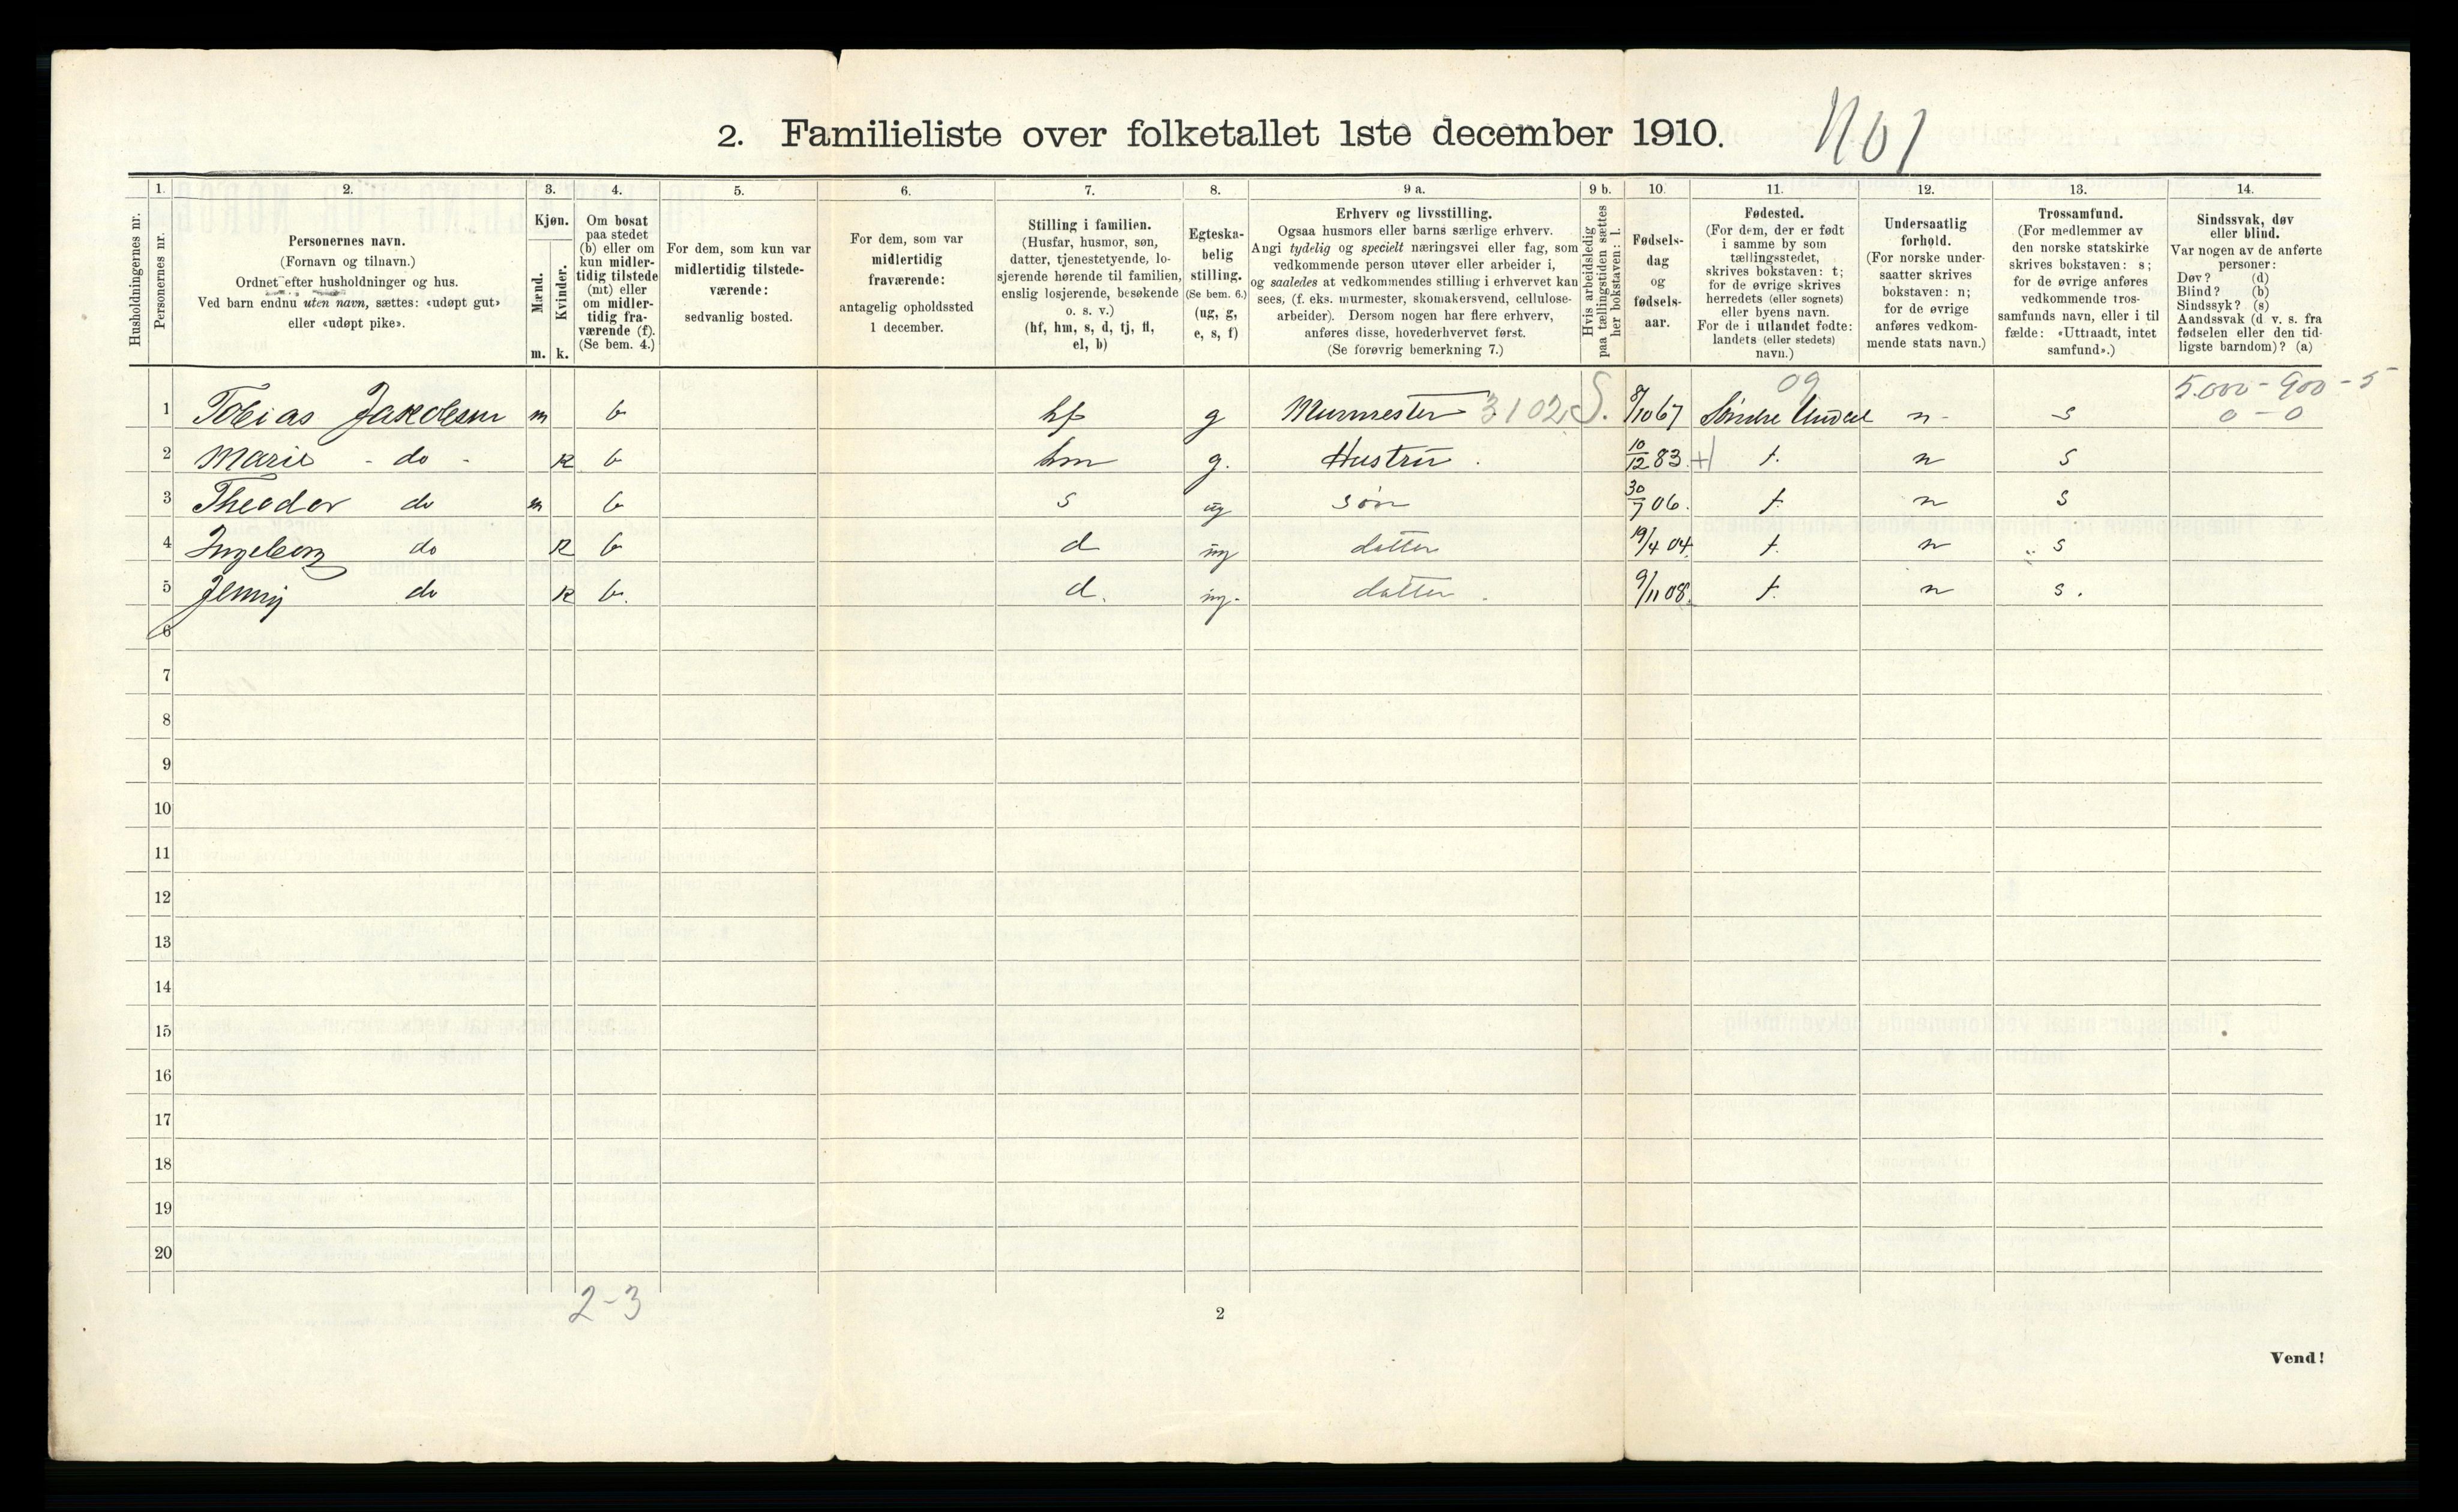 2. Familieliste over folketallet 1ste december 1910.
No 1
Husholdningernes nr.
1.
Personernes nr.
2.
Personernes navn.
(Fornavn og tilnavn.)
Ordnet efter husholdninger og hus.
Ved barn endnu uten navn, sættes: «udøpt gut»
eller «udøpt pike».
3.
Kjøn.
Mænd.
Kvinder.
m. k.
4.
Om bosat
paa stedet
(b) eller om
kun midler-
tidig tilstede
(mt) eller
om midler-
tidig fra-
værende (f).
(Se bem. 4.)
5.
For dem, som kun var
midlertidig tilstede-
værende:
sedvanlig bosted.
6.
For dem, som var
midlertidig
fraværende:
antagelig opholdssted
1 december.
7.
Stilling i familien.
(Husfar, husmor, søn,
datter, tjenestetyende, lo-
sjerende hørende til familien,
enslig losjerende, besøkende
o. s. v.)
(hf, hm, s, d, tj, fl,
el, b)
8.
Egteska-
belig
stilling.
(Se bem. 6.)
(ug, g,
e, s, f)
9 a.
Erhverv og livsstilling.
Ogsaa husmors eller barns særlige erhverv.
Angi tydelig og specielt næringsvei eller fag, som
vedkommende person utøver eller arbeider i,
og saaledes at vedkommendes stilling i erhvervet kan
sees, (f. eks. murmester, skomakersvend, cellulose-
arbeider). Dersom nogen har flere erhverv,
anføres disse, hovederhvervet først.
(Se forøvrig bemerkning 7.)
9 b.
Hvis arbeidsledig
paa tællingstiden sættes
her bokstaven: l.
10.
Fødsels-
dag
og
fødsels-
aar.
11.
Fødested.
(For dem, der er født
i samme by som
tællingsstedet,
skrives bokstaven: t;
for de øvrige skrives
herredets (eller sognets)
eller byens navn.
For de i utlandet fødte:
landets (eller stedets)
navn.)
12.
Undersaatlig
forhold.
(For norske under-
saatter skrives
bokstaven: n;
for de øvrige
anføres vedkom-
mende stats navn.)
13.
Trossamfund.
(For medlemmer av
den norske statskirke
skrives bokstaven: s;
for de øvrige anføres
vedkommende tros-
samfunds navn, eller i til
fælde: «Uttraadt, intet
samfund».)
14.
Sindssvak, døv
eller blind.
Var nogen av de anførte
personer:
Døv? (d)
Blind? (b)
Sindssyk? (s)
Aandssvak (d. v. s. fra
fødselen eller den tid-
ligste barndom)? (a)
09 5.000 - 900 - 5
1 Tobias Jakobsen m b hf g Murmester 3102 S. 8/10 67 Söndre Undal n - s 0 - 0
2 Marie - do - k b hm g. Hustru . 10/12 83. + t. n s
3 Theodor do m b s ug sön 30/7 06. t. n s
4 Ingeborg do k b d ug datter 19/4 04. t. n s
5 Jenny do k b. d. ug. datter . 9/11 08. t. n s.
6
7
8
9
10
11
12
13
14
15
16
17
18
19
20
2-3
2
Vend!